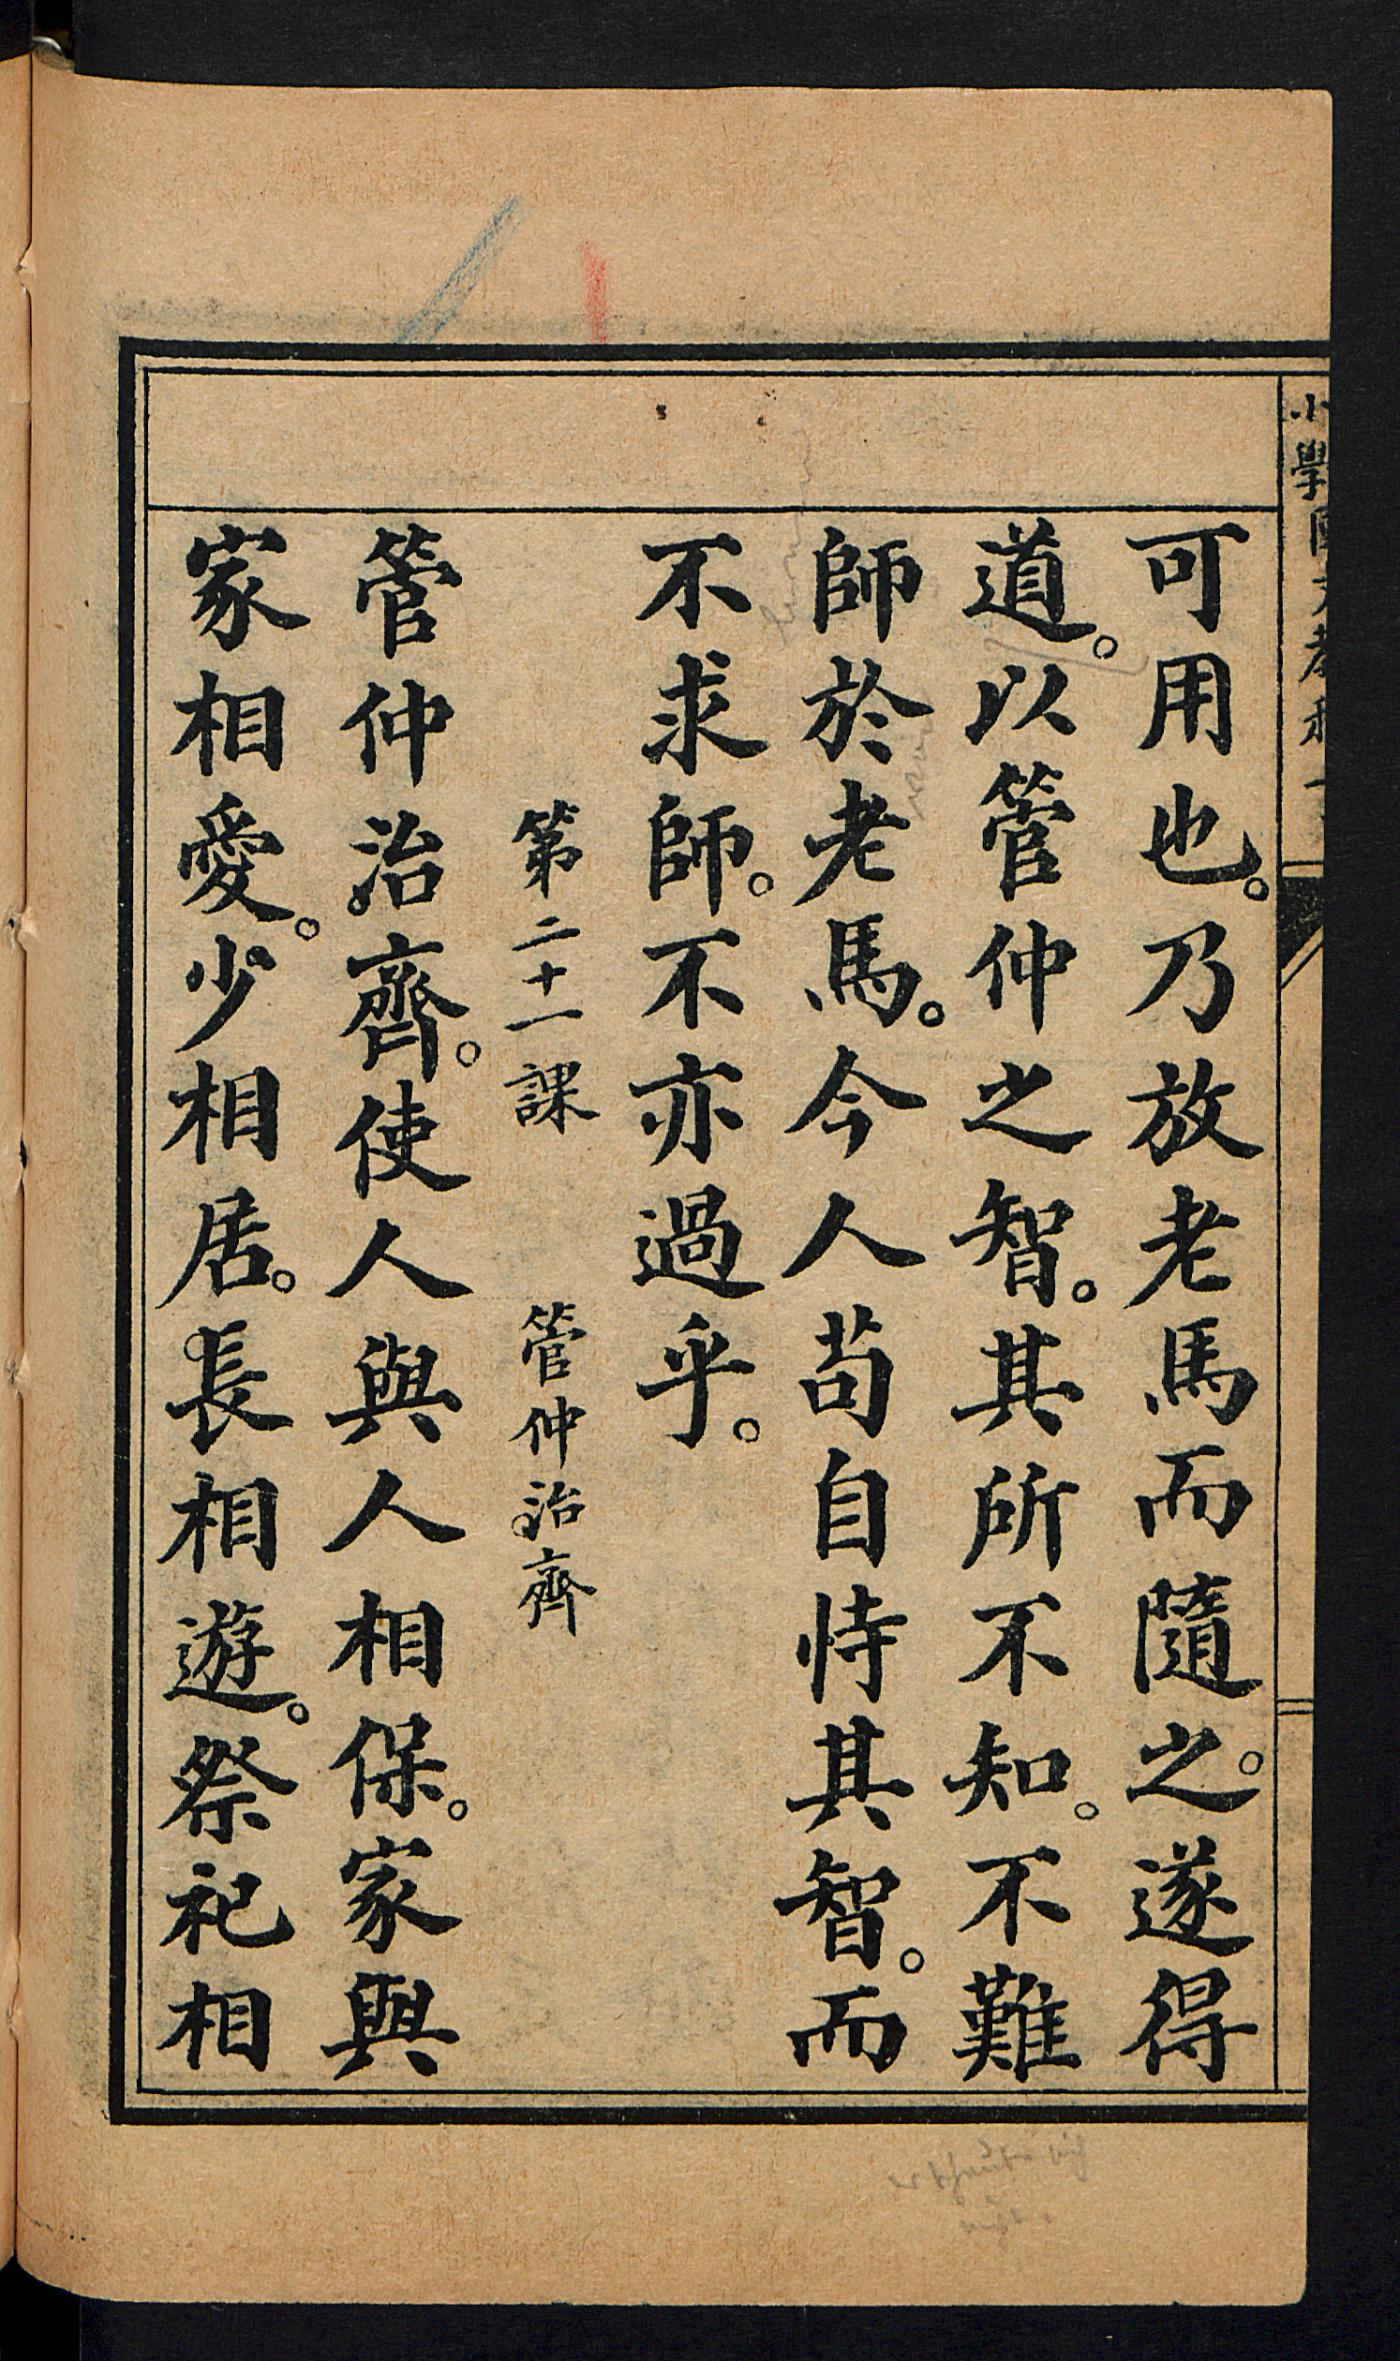 可用也。乃放老馬而隨之。遂得
道。以管仲之智。其所不知。不難
師於老馬。今人苟自恃其智。而
不求師。不亦過乎。
第二十一課　管仲治齊
管仲治齊。使人與人相保。家與
家相愛。少相居。長相遊。祭祀相
小學國文教科